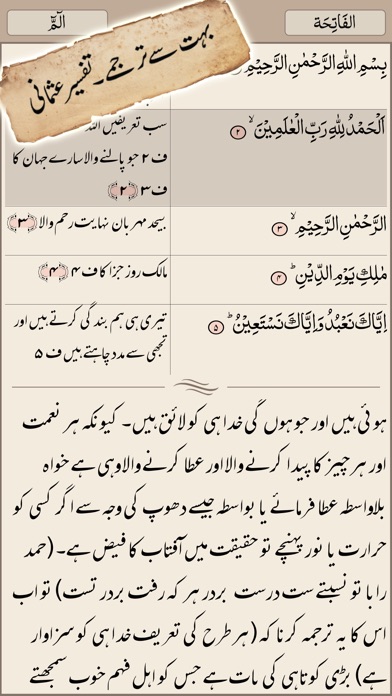 الٓمّٓ
الفَاتِحَة
بہت سے ترجمے۔ تفسیر عثمانی
بِسْمِ اللهِ الرَّحْمٰنِ الرَّحِيْمِ
اَلْحَمْدُ لِلّٰهِ رَبِّ الْعٰلَمِيْنَ ۙ ۲
سب تعریفیں اللہ
ف ۲ جو پالنے والا سارے جہان کا
ف ۳ ﴿۲﴾
الرَّحْمٰنِ الرَّحِيْمِ ۙ ۳
بیحد مہربان نہایت رحم والا ﴿۳﴾
مٰلِكِ يَوْمِ الدِّيْنِ ؕ ۴
مالک روز جزا کا ف ۴ ﴿۴﴾
اِيَّاكَ نَعْبُدُ وَاِيَّاكَ نَسْتَعِيْنُ ؕ ۵
تیری ہی ہم بندگی کرتے ہیں اور
تجھی سے مدد چاہتے ہیں ف ۵
ہوئی ہیں اور جو ہوں گی خدا ہی کو لائق ہیں۔ کیونکہ ہر نعمت
اور ہر چیز کا پیدا کرنے والا اور عطا کرنے والا وہی ہے خواہ
بلاواسطہ عطا فرمائے یا بواسطہ جیسے دھوپ کی وجہ سے اگر کسی کو
حرارت یا نور پہنچے تو حقیقت میں آفتاب کا فیض ہے۔ (حمد
را با تو نسبتے ست درست بر در ہر کہ رفت بر در تست) تو اب
اس کا یہ ترجمہ کرنا کہ (ہر طرح کی تعریف خدا ہی کو سزاوار
ہے) بڑی کوتاہی کی بات ہے جس کو اہل فہم خوب سمجھتے